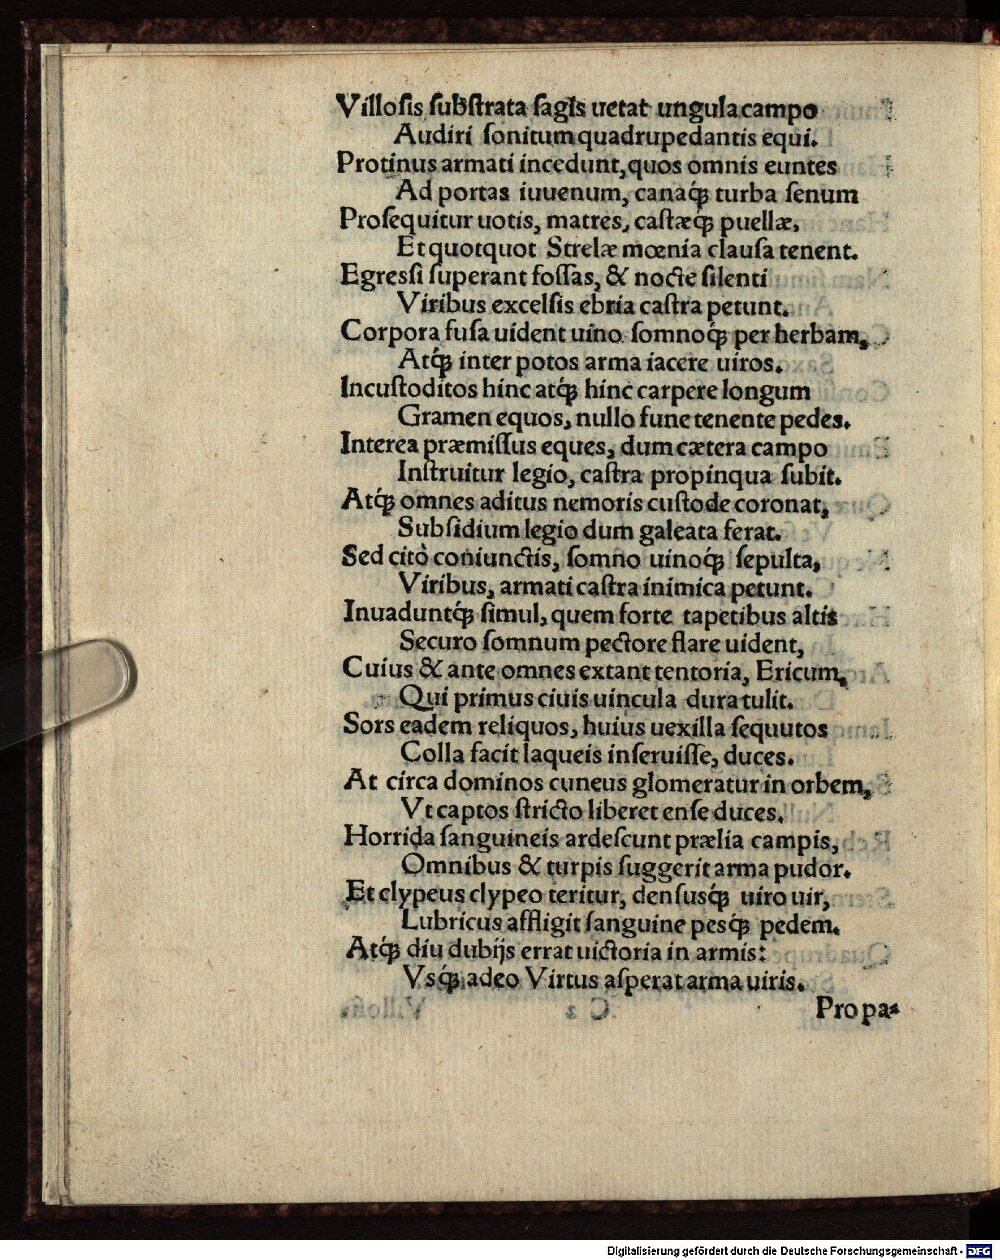 Villoſis ſubſtrata ſagis uetat ungula campo
Audiri ſonitum quadrupedantis equi.
Protinus armati incedunt, quos omnis euntes
Ad portas iuuenum, canaq́; turba ſenum
Proſequitur uotis, matres, caſtæq́; puellæ,
Et quotquot Strelæ mœnia clauſa tenent.
Egreſſi ſuperant foſſas, & nocte ſilenti
Viribus excelſis ebria caſtra petunt.
Corpora fuſa uident uino ſomnoq́; per herbam,
Atq́; inter potos arma iacere uiros.
Incuſtoditos hinc atq́; hinc carpere longum
Gramen equos, nullo fune tenente pedes.
Interea præmiſſus eques, dum cætera campo
Inſtruitur legio, caſtra propinqua ſubit.
Atq́; omnes aditus nemoris cuſtode coronat,
Subſidium legio dum galeata ferat.
Sed citò coniunctis, ſomno uinoq́; ſepulta,
Viribus, armati caſtra inimica petunt.
Inuaduntq́; ſimul, quem forte tapetibus altis
Securo ſomnum pectore flare uident,
Cuius & ante omnes extant tentoria, Ericum,
Qui primus ciuis uincula dura tulit.
Sors eadem reliquos, huius uexilla ſequutos
Colla facit laqueis inſeruiſſe, duces.
At circa dominos cuneus glomeratur in orbem,
Vt captos ſtricto liberet enſe duces.
Horrida ſanguineis ardeſcunt prælia campis,
Omnibus & turpis ſuggerit arma pudor.
Et clypeus clypeo teritur, denſusq́; uiro uir,
Lubricus affligit ſanguine pesq́; pedem.
Atq́; diu dubijs errat uictoria in armis:
Vsq́; adeo Virtus aſperat arma uiris.
Propa⸗
Digitalisierung gefördert durch die Deutsche Forschungsgemeinschaft - DFG